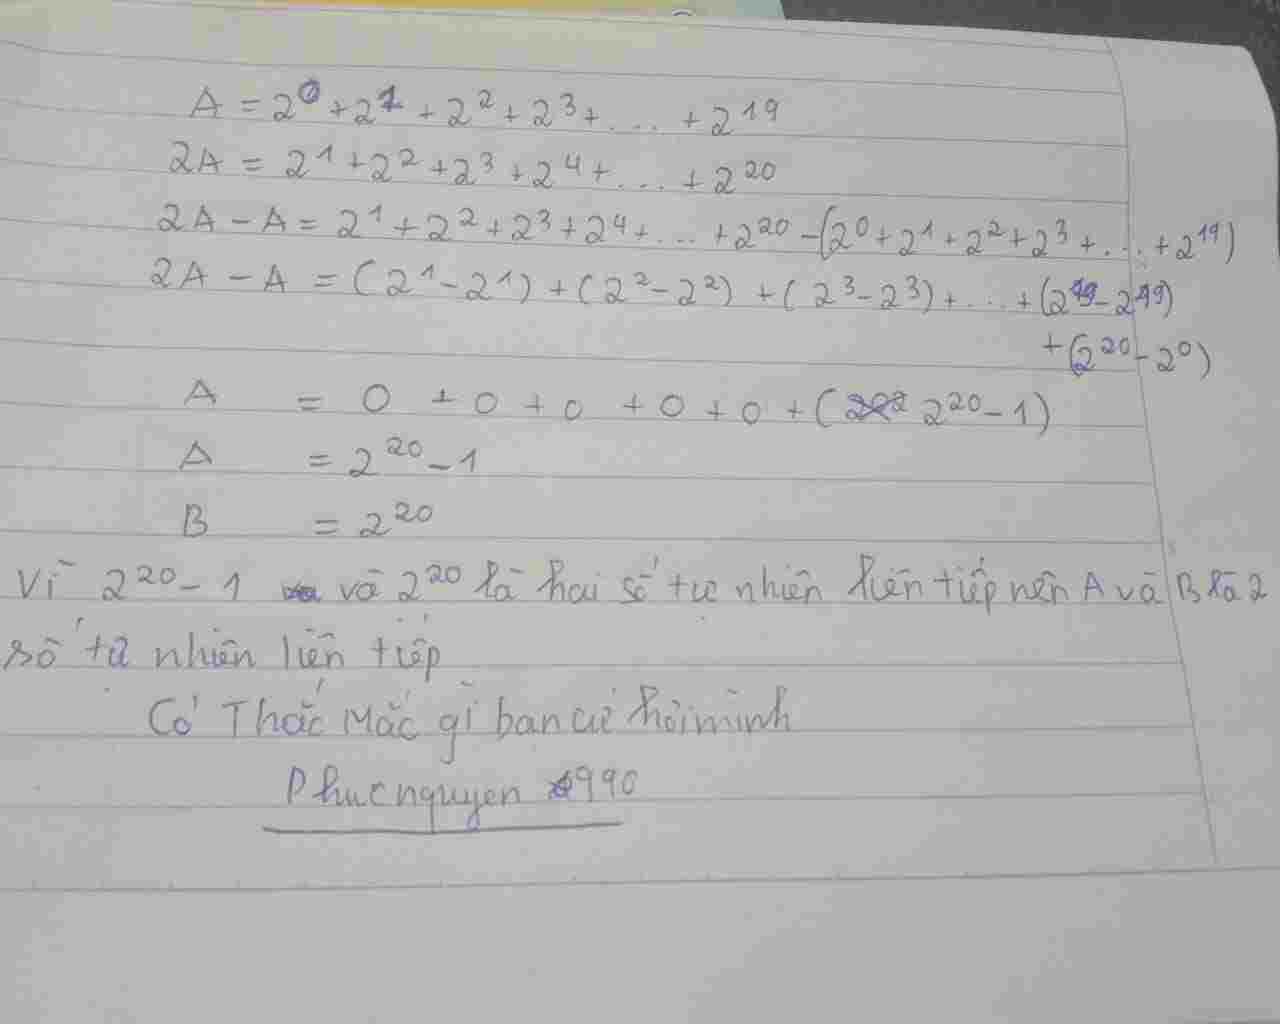 A = 2⁰ + 2¹ + 2² + 2³ + ... + 2¹⁹
2A = 2¹ + 2² + 2³ + 2⁴ + ... + 2²⁰
2A - A = 2¹ + 2² + 2³ + 2⁴ + ... + 2²⁰ - (2⁰ + 2¹ + 2² + 2³ + ... + 2¹⁹)
2A - A = (2¹ - 2¹) + (2² - 2²) + (2³ - 2³) + ... + (2¹⁹ - 2¹⁹)
+ (2²⁰ - 2⁰)
A = 0 + 0 + 0 + 0 + 0 + ( 2²⁰ - 1)
A = 2²⁰ - 1
B = 2²⁰
Vì 2²⁰ - 1 và 2²⁰ là hai số tự nhiên liên tiếp nên A và B là 2
số tự nhiên liên tiếp
Có Thắc Mắc gì bạn cứ hỏi mình
Phucnguyen 990